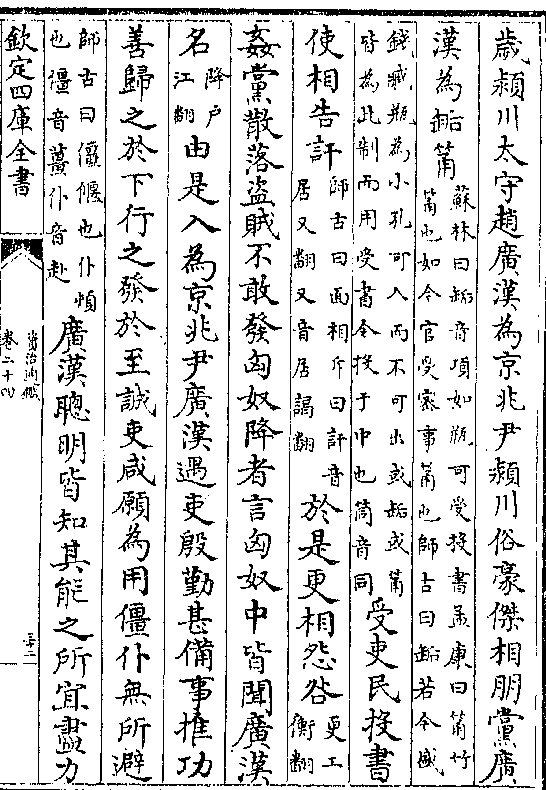 歲潁川太守趙廣漢為京兆尹潁川俗豪傑相朋黨廣
漢為缿筩蘇林曰缿音項如瓶可受投書孟康曰筩竹
筩也如今官受密事筩也師古曰缿若今盛
錢臧瓶為小孔可入而不可出或缿或筩
皆為此制而用受書令投于中也筒音同受吏民投書
使相告訐師古曰面相斥曰訐音
居乂翻又音居謁翻於是更相怨咎更工
衡翻
姦黨散落盜賊不敢發匈奴降者言匈奴中皆聞廣漢
名降户
江翻由是入為京兆尹廣漢遇吏殷勤甚備事推功
善歸之於下行之發於至誠吏咸願為用僵仆無所避
師古曰僵偃也仆頓
也僵音薑仆音赴廣漢聰明皆知其能之所宜盡力
欽定四庫全書
資治通鑑
卷二十四